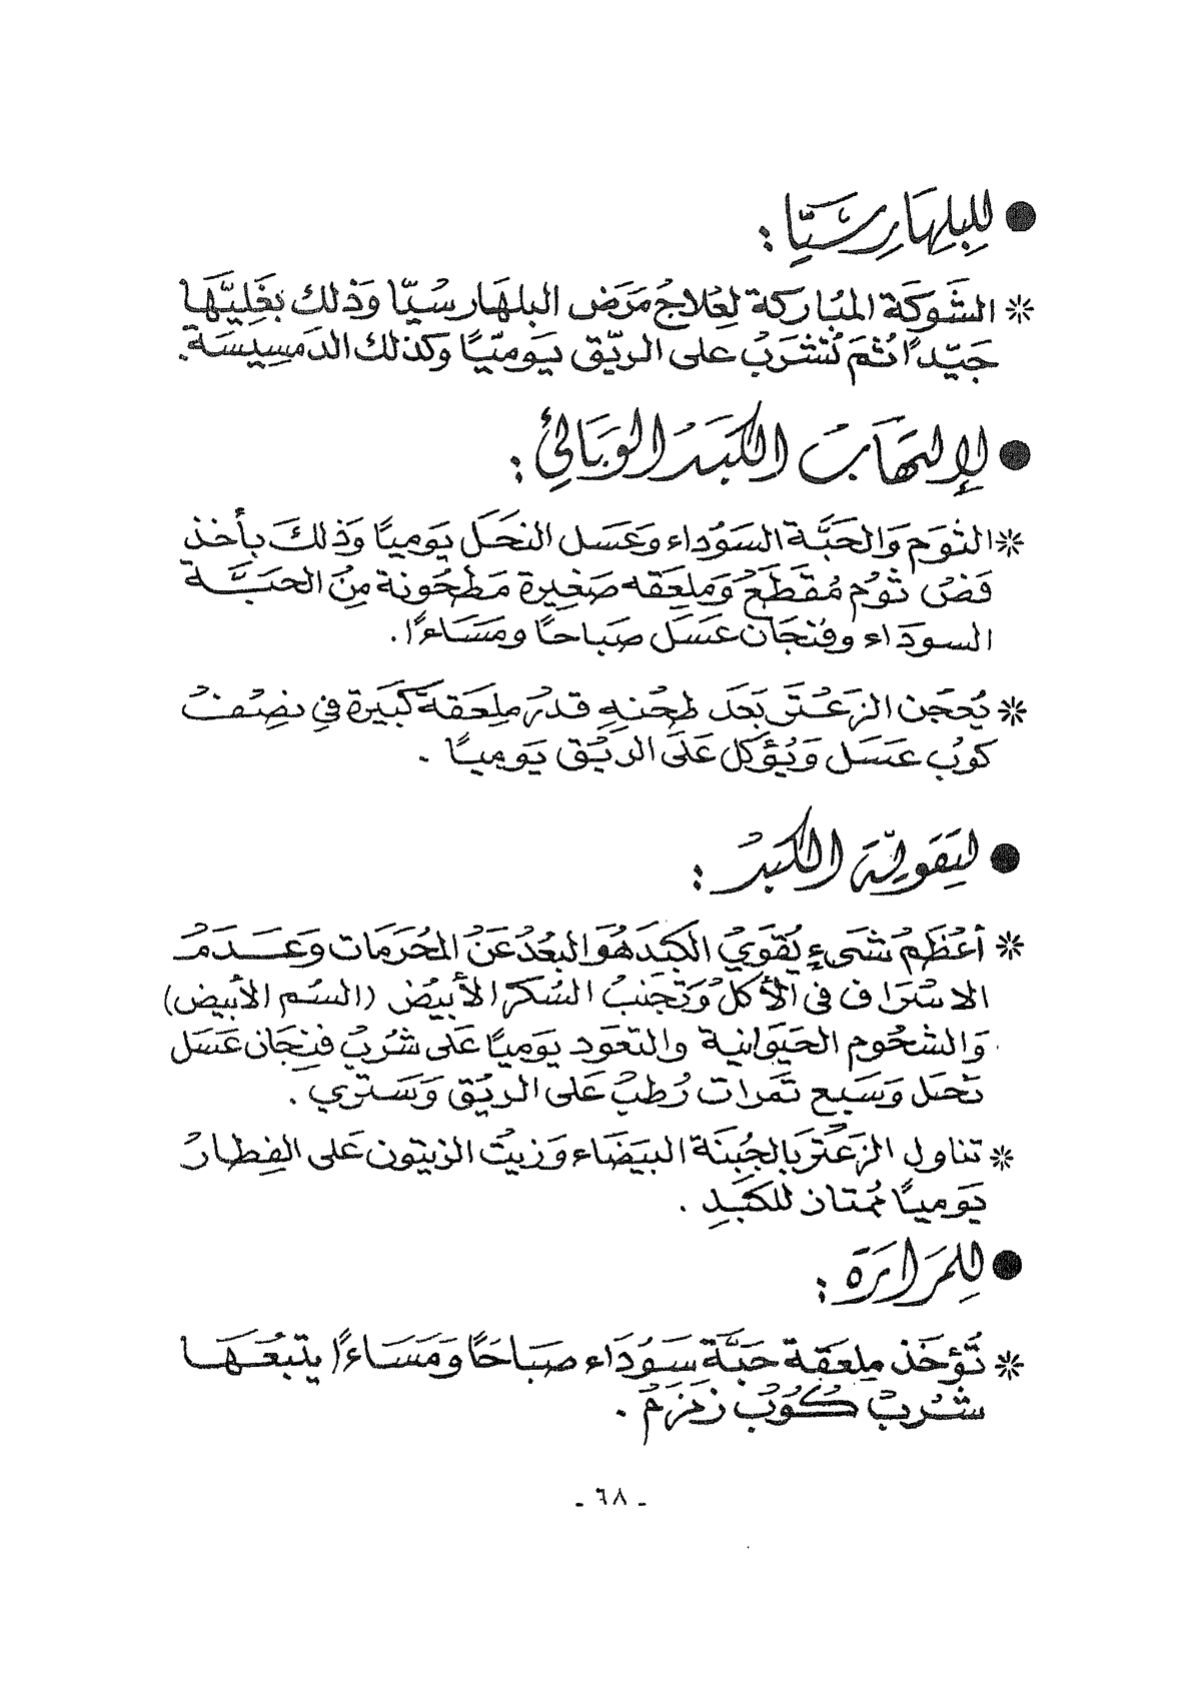 ● للبلهارسيا :
* الشوكة المباركة لعلاج مرض البلهارسيّا وذلك بغليّها
جيّدًا ثم تشرب على الريّق يوميّيًا وكذلك الدمسيسة.
● لإلتهاب الكبد الوبائي :
* الثوم والحبَّة السوداء وعسل النحل يوميًا وذلك بأخذ
فص ثوم مُقطع وملعقه صغيرة مطحونة من الحبَّة
السوداء وفنجان عسل صباحًا ومساءًا .
* يُعجن الزعتر بعد طحنه قدر ملعقة كبيرة في نصف
كوب عسل ويُؤكل على الريق يوميًا .
● لتقوية الكبد :
* أعظم شىءٍ يُقوي الكبد هو البعد عن المحرمات وعدم
الاسراف فى الأكل وتجنب السكر الأبيض (السم الأبيض)
والشحوم الحيوانية والتعود يوميًا على شرب فنجان عسل
نحل وسبع تمرات رُطب على الريق وسترى .
* تناول الزعتر بالجبنة البيضاء وزيت الزيتون على الفطار
يوميًا ممتاز للكبد .
● للمرارة :
* تُؤخذ ملعقة حبَّة سوداء صباحًا ومساءًا يتبعها
شرب كوب زمزم .
- ٦٨ -